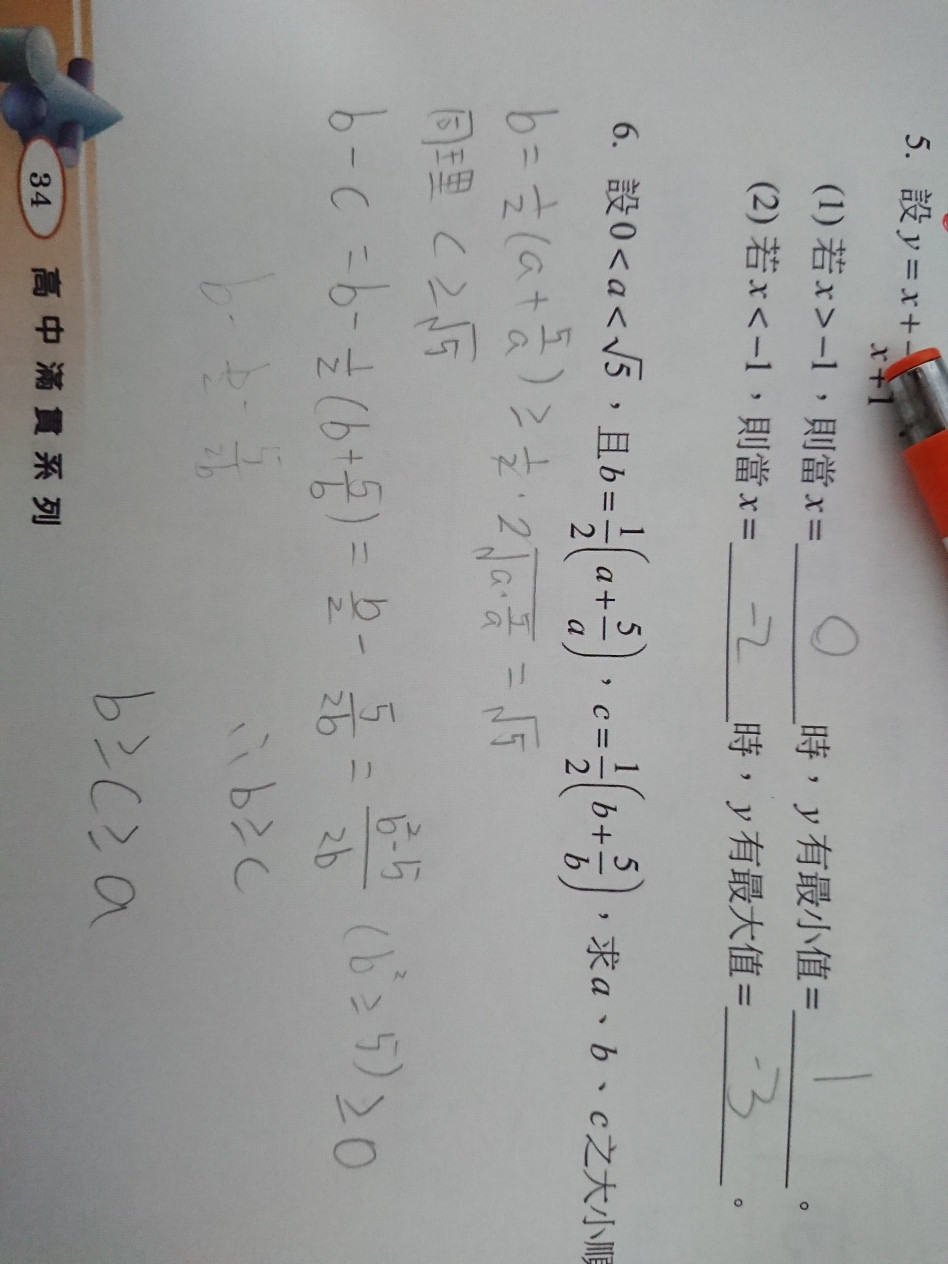 5. 設 y = x +
x+1
(1) 若 x > −1，則當 x = 0 時，y 有最小值 = 1 。
(2) 若 x < −1，則當 x = -2 時，y 有最大值 = -3 。
6. 設 0 < a < √5，且 b = 1/2(a + 5/a)，c = 1/2(b + 5/b)，求 a、b、c 之大小順
b = 1/2(a + 5/a) ≥ 1/2 · 2√(a · 5/a) = √5
同理 c ≥ √5
b - c = b - 1/2(b + 5/b) = b/2 - 5/2b = (b² - 5)/2b (b² ≥ 5) ≥ 0
b - b/2 - 5/2b
∴ b ≥ c
b ≥ c ≥ a
34 高中滿貫系列